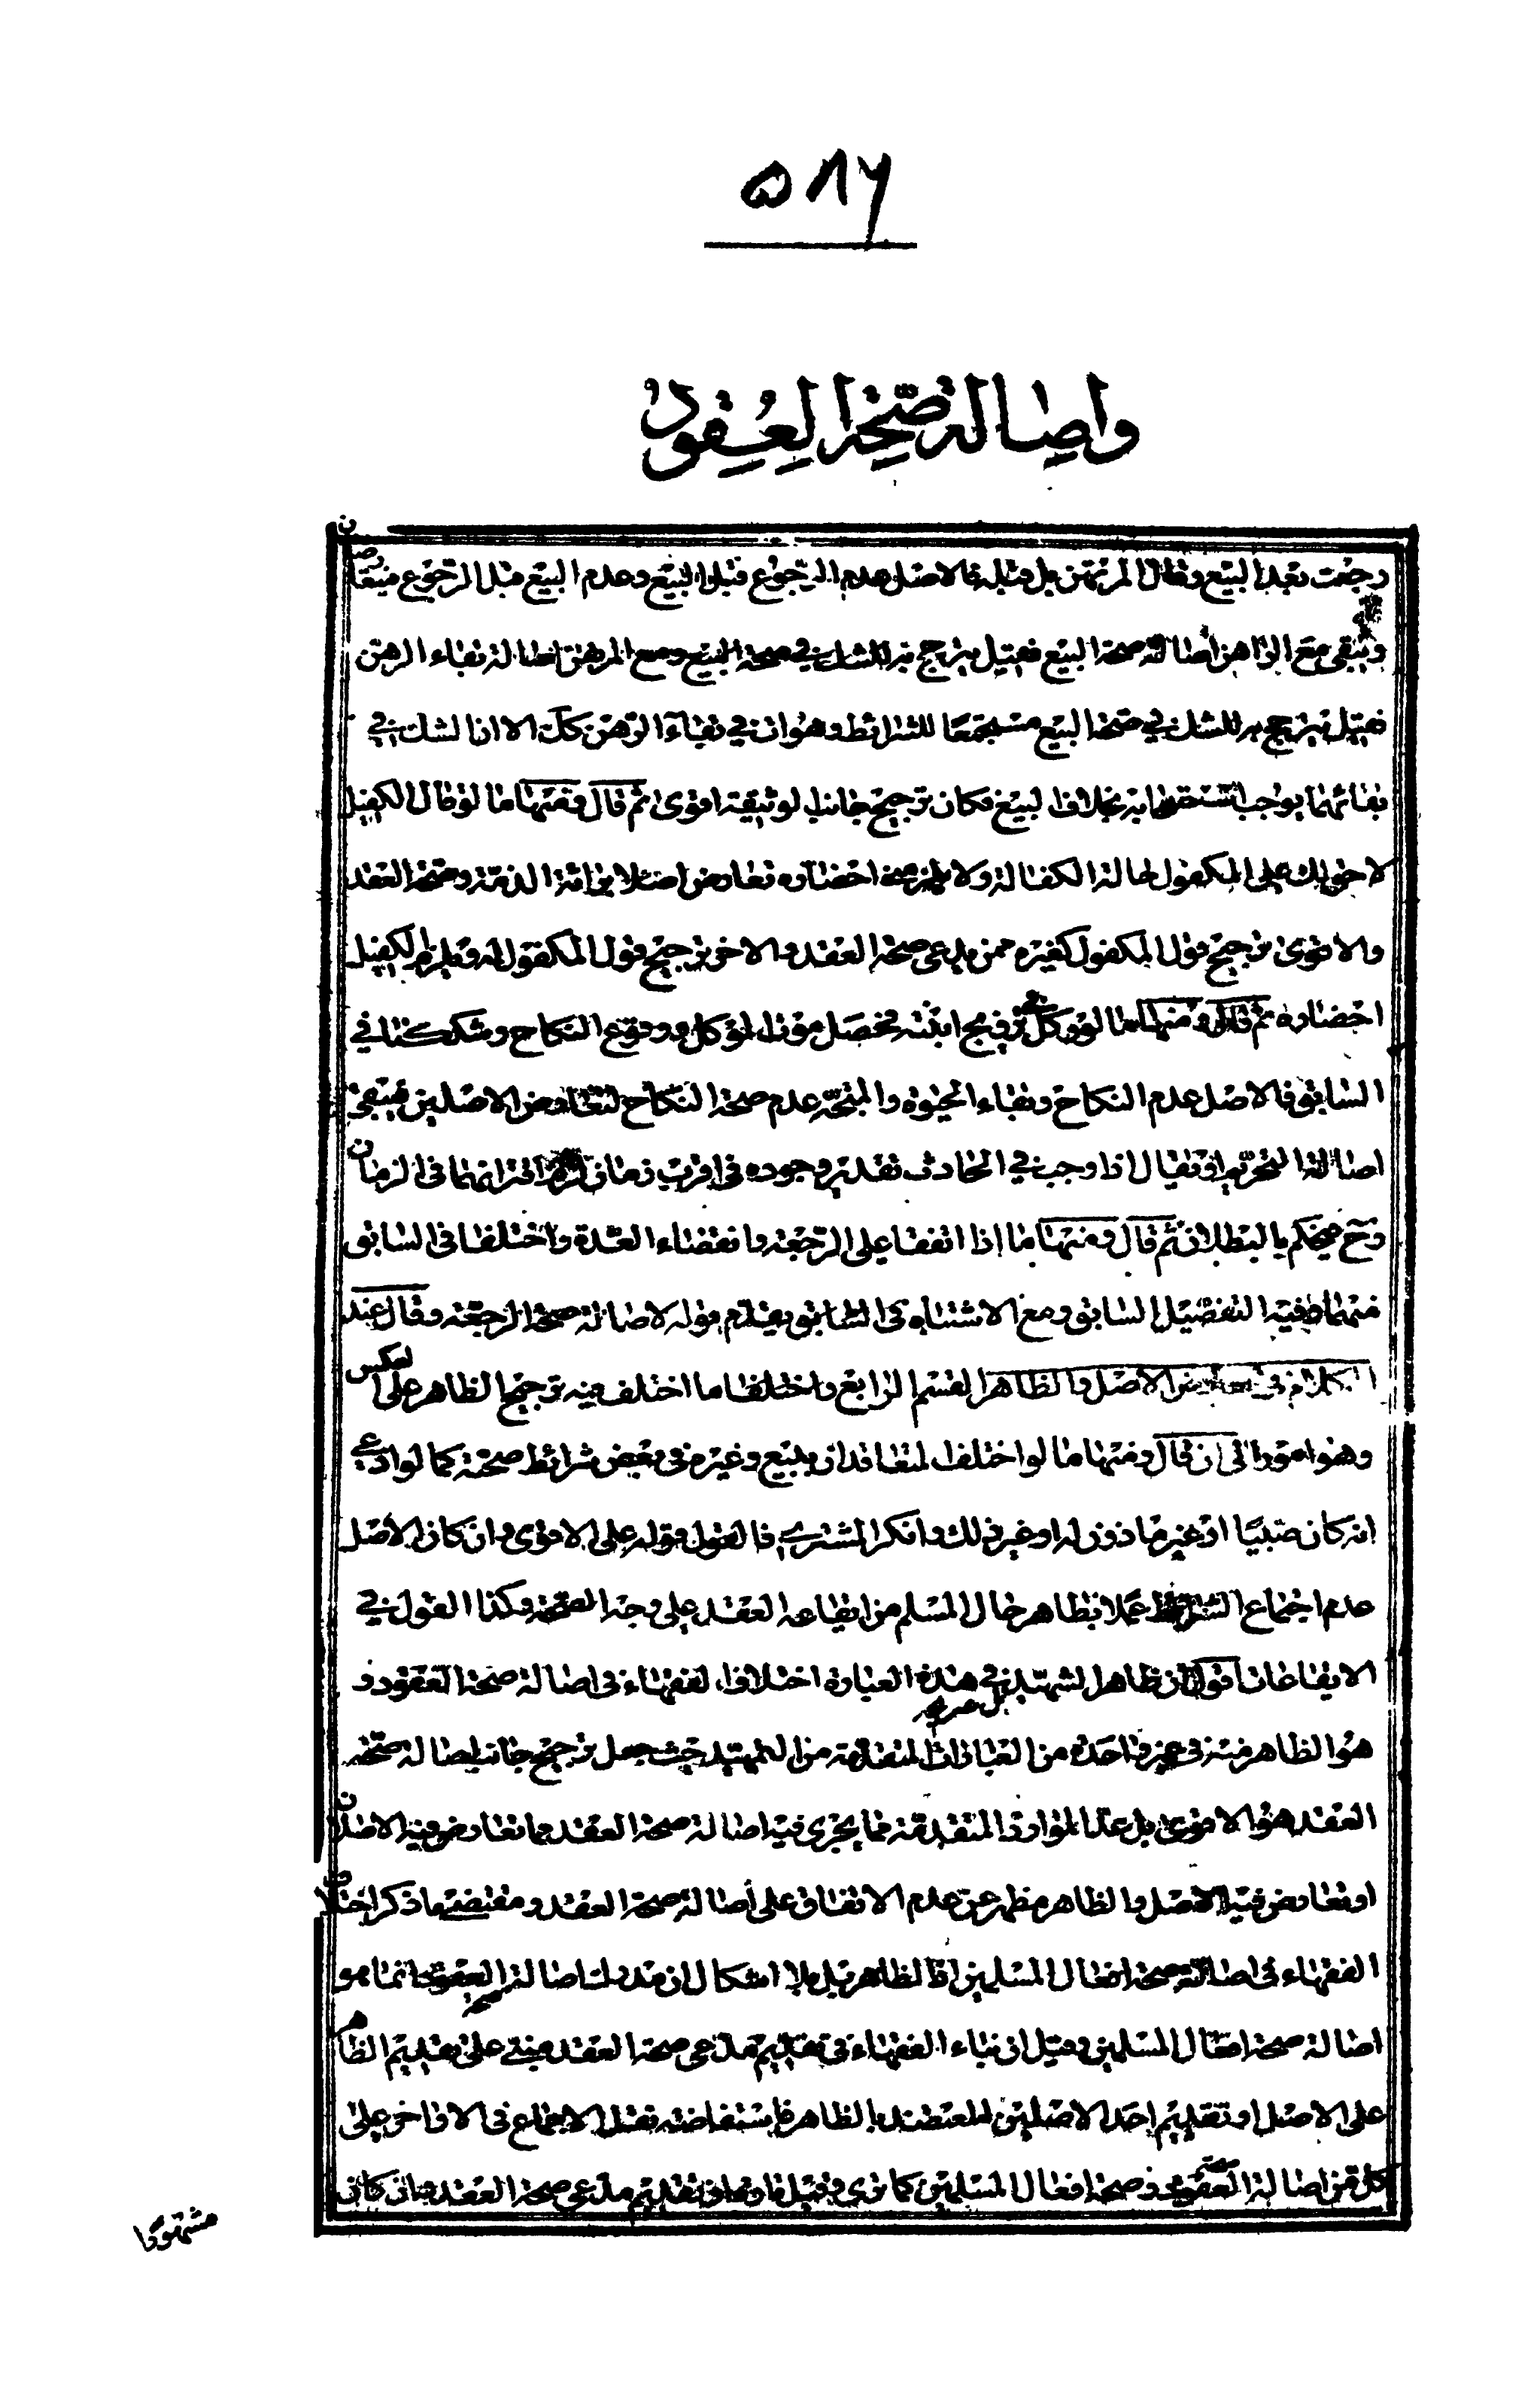 ٥٨٦
واصالة صحة العقود
رجعت بعد البيع وقال المرتهن بل قبله فالاصل عدم الرجوع قبل البيع وعدم البيع قبل الرجوع فيتعارضان
ويبقى مع الراهن أصالة صحة البيع فقيل يترجح به للشك في صحة البيع ومع المرتهن اصالة بقاء الرهن
فقيل يترجح به للشك في صحة البيع مستجمعا للشرائط وهو ان في بقاء الرهن كك الا ان الشك في
بقائهما يوجب استصحابه بخلاف البيع فكان ترجيح جانب الوثيقة اقوى ثم قال ومنها ما لو قال الكفيل
لا حق لك على المكفول حالة الكفالة ولا يلزمنى احضاره تعارض اصلا براءة الذمة وصحة العقد
والاقوى ترجيح قول المكفول كغيره ممن يدعى صحة العقد والاخر ترجيح قول المكفول له وقد يلزم الكفيل
احضاره ثم قال ومنها ما لو وكل فى تزويج ابنته فحصل موت الموكل ووقوع النكاح وشككنا في
السابق فالاصل عدم النكاح وبقاء الحيوة والمتجه عدم صحة النكاح لتعارض الاصلين فيبقى
اصالة التحريم او يقال اذا وجب في الحادث تقدير وجوده فى اقرب زمان لزم اقترانهما فى الزمان
وح فيحكم بالبطلان ثم قال ومنها ما إذا اتفقا على الرجعة وانقضاء العدة واختلفا فى السابق
منهما وفيه التفصيل السابق ومع الاشتباه فى السابق يقدم قوله لاصالة صحة الرجعة وقال عند
الكلام فى تعارض الاصل والظاهر القسم الرابع واختلفا ما اختلف فيه ترجيح الظاهر على العكس
وهو امور الى ان قال ومنها ما لو اختلف المتعاقدان ببيع وغيره فى بعض شرائط صحته كما لو ادعي
انه كان صبيا او غير ماذون له او غير ذلك وانكر المشتري فالقول قوله على الاقوى وان كان الاصل
عدم اجتماع الشرائط عملا بظاهر حال المسلم من ايقاعه العقد على وجه الصحة وكذا القول في
الايقاعات اقول ان ظاهر الشهيد في هذه العبارة اختلاف الفقهاء فى اصالة صحة العقود و
هو الظاهر منه فى غير واحدة من العبارات المتقدمة من التمهيد بل صريحه حيث جعل ترجيح جانب اصالة صحة
العقد هو الاقوى بل عد الموارد المتقدمة فما يجرى فيه اصالة صحة العقد مما تعارض فيه الاصلان
او تعارض فيه الاصل والظاهر مظهر عن عدم الاتفاق على أصالة صحة العقد ومقتضى ما ذكر اختلاف
الفقهاء فى اصالة صحة افعال المسلمين اذ الظاهر بل بلا اشكال ان مدرك اصالة صحة العقود انما هو
اصالة صحة افعال المسلمين وقيل ان بناء الفقهاء فى تقديم مدعى صحة العقد مبني على تقديم الظاهر
على الاصل او تقديم احد الاصلين المعتضد بالظاهر فاستفاضة نقل الاجماع فى الاواخر على
كل من اصالة صحة العقود وصحة افعال المسلمين كما ترى وقيل تقديم مدعى صحة العقد وان كان
مشهورا